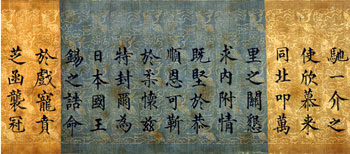 馳一介之
使欣慕来
同北叩萬
里之關懇
求内附情
既堅於恭
順恩可靳
於柔懷茲
特封爾為
日本國王
錫之誥命
於戲寵賁
芝函襲冠